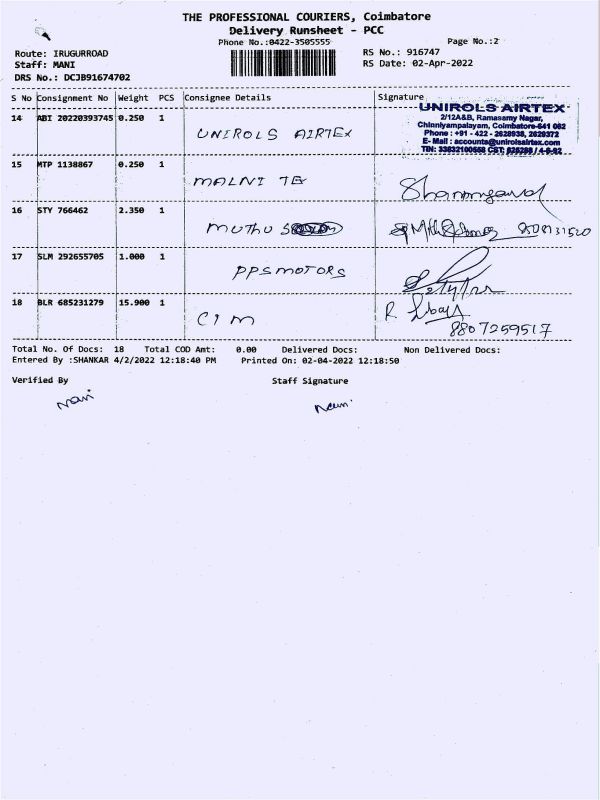 THE PROFESSIONAL COURIERS, Coimbatore
Delivery Runsheet - PCC
Phone No.:0422-3505555
Page No.:2
Route: IRUGURROAD
RS No.: 916747
Staff: MANI
RS Date: 02-Apr-2022
DRS No.: DCJB91674702
S No Consignment No Weight PCS Consignee Details Signature
14 ABI 20220393745 0.250 1 UNIROLS AIRTEX
UNIROLS AIRTEX
2/12A&B, Ramasamy Nagar,
Chinniyampalayam, Coimbatore-641 062
Phone : +91 - 422 - 2628938, 2629372
E- Mail : accounts@unirolsairtex.com
15 MTP 1138867 0.250 1 MALNI TEX
16 STY 766462 2.350 1 MUTHU
17 SLM 292655705 1.000 1 PPS MOTORS
18 BLR 685231279 15.900 1 CIM
R
8807259517
Total No. Of Docs: 18 Total COD Amt: 0.00 Delivered Docs: Non Delivered Docs:
Entered By :SHANKAR 4/2/2022 12:18:40 PM Printed On: 02-04-2022 12:18:50
Verified By Staff Signature
Mani